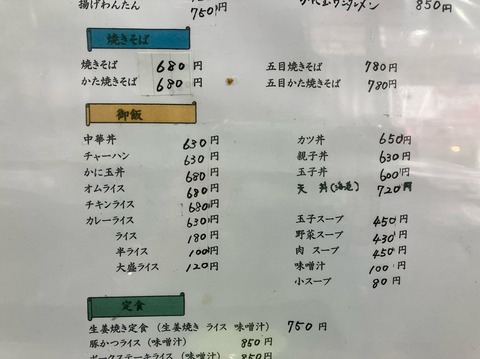 揚げわんたん
750円
850円
焼きそば
焼きそば 680円
かた焼きそば 680円
五目焼きそば 780円
五目かた焼きそば 780円
御飯
中華丼 630円
チャーハン 630円
かに玉丼 680円
オムライス 680円
チキンライス 680円
カレーライス 630円
ライス 180円
半ライス 100円
大盛ライス 120円
カツ丼 650円
親子丼 630円
玉子丼 600円
天丼(海老) 720円
玉子スープ 450円
野菜スープ 430円
肉スープ 450円
味噌汁 100円
小スープ 80円
定食
生姜焼き定食 (生姜焼き ライス 味噌汁) 750円
豚かつライス (味噌汁) 850円
ポークステーキライス (味噌汁) 850円